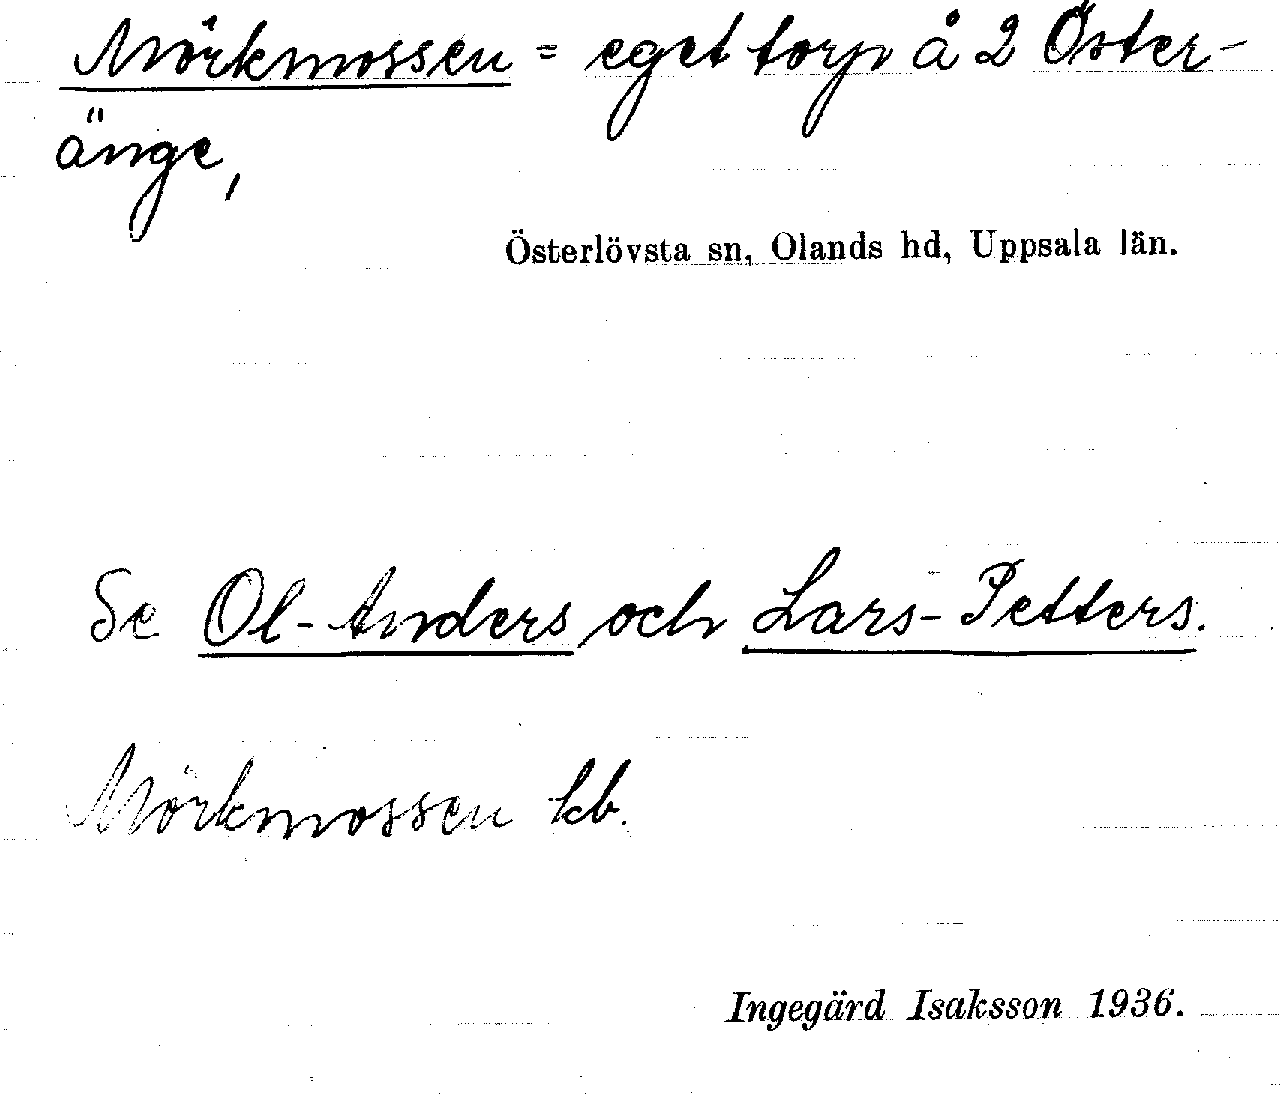 Mörkmossen = eget torp å 2 Öster-
änge,
Österlövsta sn, Olands hd, Uppsala län.
Se Ol-Anders och Lars-Petters.
Mörkmossen kb.
Ingegärd Isaksson 1936.